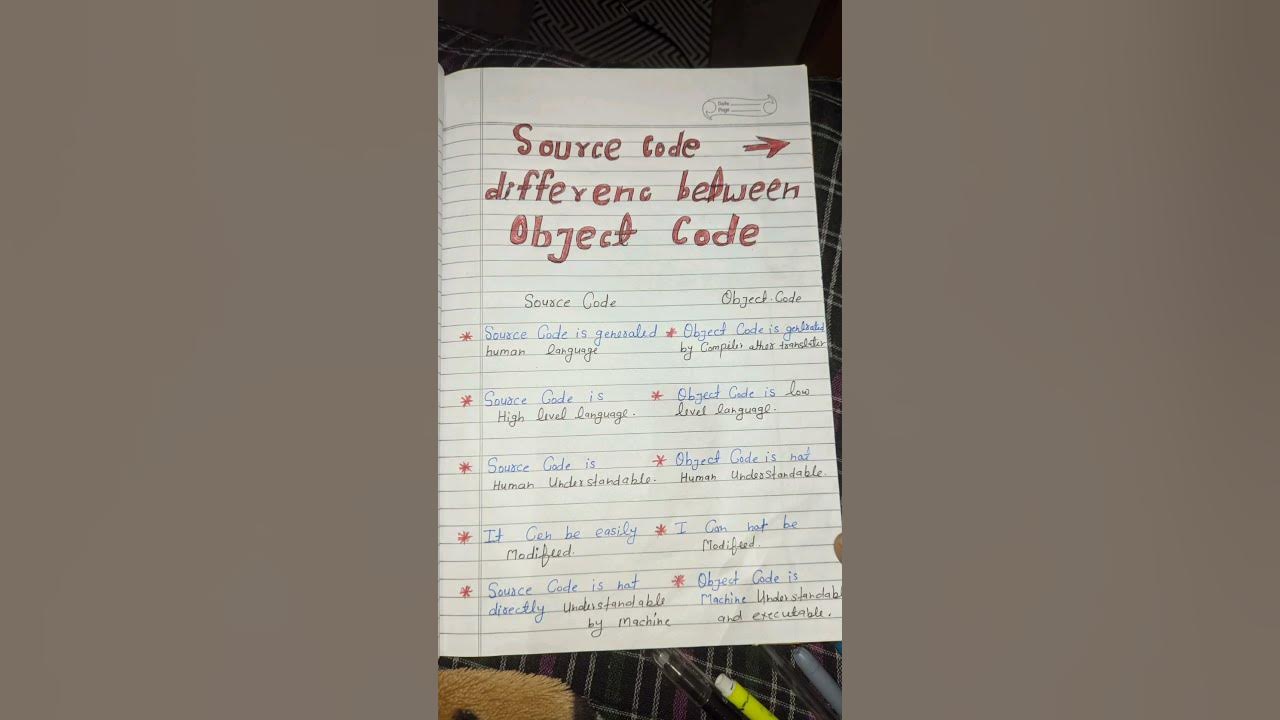 Date
Page
Source Code →
differenc between
Object Code
Source Code
Object Code
* Source Code is generated
human language
* Object Code is generated
by Compiler other translator
* Source Code is
High level language.
* Object Code is low
level language.
* Source Code is
Human Understandable.
* Object Code is not
Human Understandable.
* It Can be easily
Modifeed.
* I Can not be
Modifeed.
* Source Code is not
directly Understandable
by Machine
* Object Code is
Machine Understandabl
and executable.